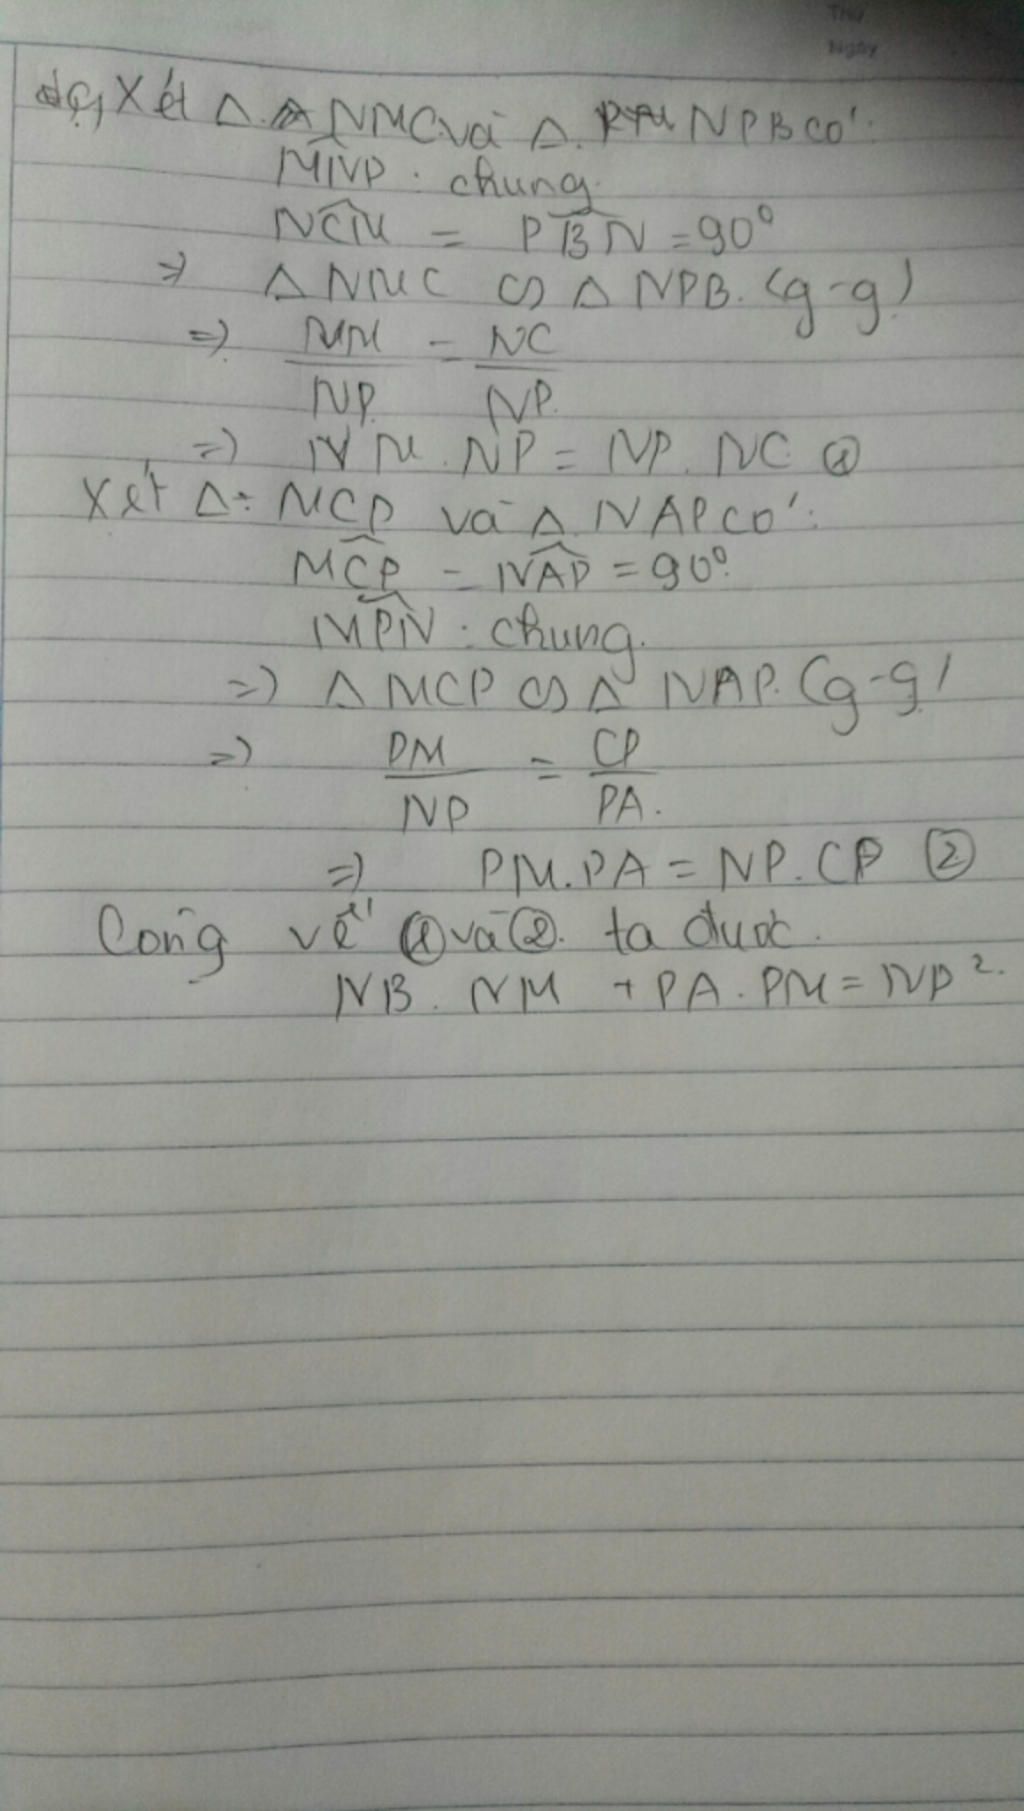 Thứ
Ngày
c, Xét Δ NMC và Δ NPB có:
MNP : chung.
NCM = PBN = 90°
=> Δ NMC ∽ Δ NPB. (g-g)
=> NM/NP = NC/NP.
=> NM . NP = NP . NC ①
Xét Δ: MCP và Δ NAP có:
MCP = NAP = 90°.
MPN : chung.
=> Δ MCP ∽ Δ NAP. (g-g)
=> PM/NP = CP/PA.
=> PM.PA = NP.CP ②
Cộng vế ① và ②. ta được.
NB . NM + PA . PM = NP².